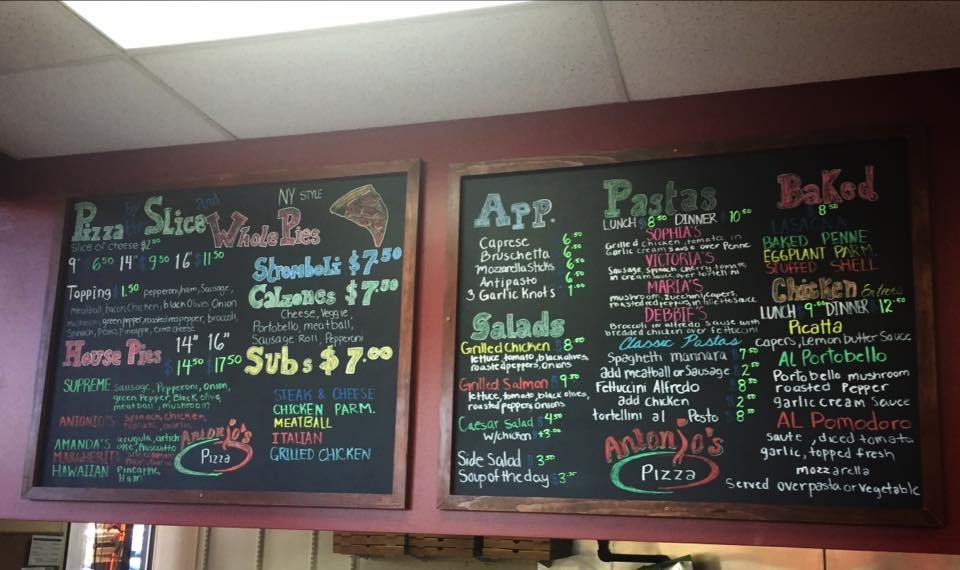 NY STYLE
Pizza Slice
Whole Pies
Slice of cheese $2.50
9" 6.50 14" $9.50 16" $11.50
Topping $1.50 pepperoni, ham, Sausage,
Meatball, bacon, Chicken, black Olives Onion
mushroom, green pepper, roasted red pepper, broccoli,
Spinach, Pineapple, extra cheese
House Pies 14" 16"
$14.50 $17.50
SUPREME Sausage, Pepperoni, Onion,
green Pepper, Black olive,
meatball, mushroom
ANTONIO'S Spinach, chicken,
tomato, garlic,
AMANDA'S arugula, artich
oke, Prosciutto
MARGHERITA
HAWAIIAN Pineapple,
Ham
Stromboli $7.50
Calzones $7.50
Cheese, Veggie,
Portobello meatball,
Sausage Roll, Pepperoni
Subs $7.00
STEAK & CHEESE
CHICKEN PARM.
MEATBALL
ITALIAN
GRILLED CHICKEN
Antonio's
Pizza
App.
Caprese 6.50
Bruschetta 6.50
Mozzarella Sticks 6.50
Antipasto 6.50
3 Garlic Knots 1.00
Salads
Grilled Chicken $8.00
lettuce, tomato, black olives,
roasted peppers, onions
Grilled Salmon $9.50
lettuce, tomato, black olives,
roasted peppers, onion
Caesar Salad $4.50
w/chicken +3.00
Side Salad $3.50
Soup of the day $3.50
Pastas
LUNCH $8.50 DINNER $10.50
SOPHIA'S
Grilled chicken, tomato, in
garlic cream sauce over Penne
VICTORIA'S
Sausage, Spinach, cherry, tomato,
in cream sauce, over tortellini
MARIA'S
mushroom, zucchini, capers,
roasted red peppers, in
DEBBIE'S
Broccoli in alfredo sauce with
breaded chicken over fettuccini
Classic Pastas
Spaghetti marinara $7.50
add meatball or Sausage $2.00
Fettuccini Alfredo $8.50
add chicken $2.00
tortellini al Pesto $8.50
Antonio's
Pizza
Baked
$8.50
LASAGNA
BAKED PENNE
EGGPLANT PARM.
STUFFED SHELL
Chicken Entrees
LUNCH 9.00 DINNER $12.50
Picatta
capers, Lemon butter Sauce
AL Portobello
Portobello mushroom
roasted Pepper
garlic cream Sauce
AL Pomodoro
saute, diced tomato
garlic, topped fresh
mozzarella
Served over pasta or vegetable